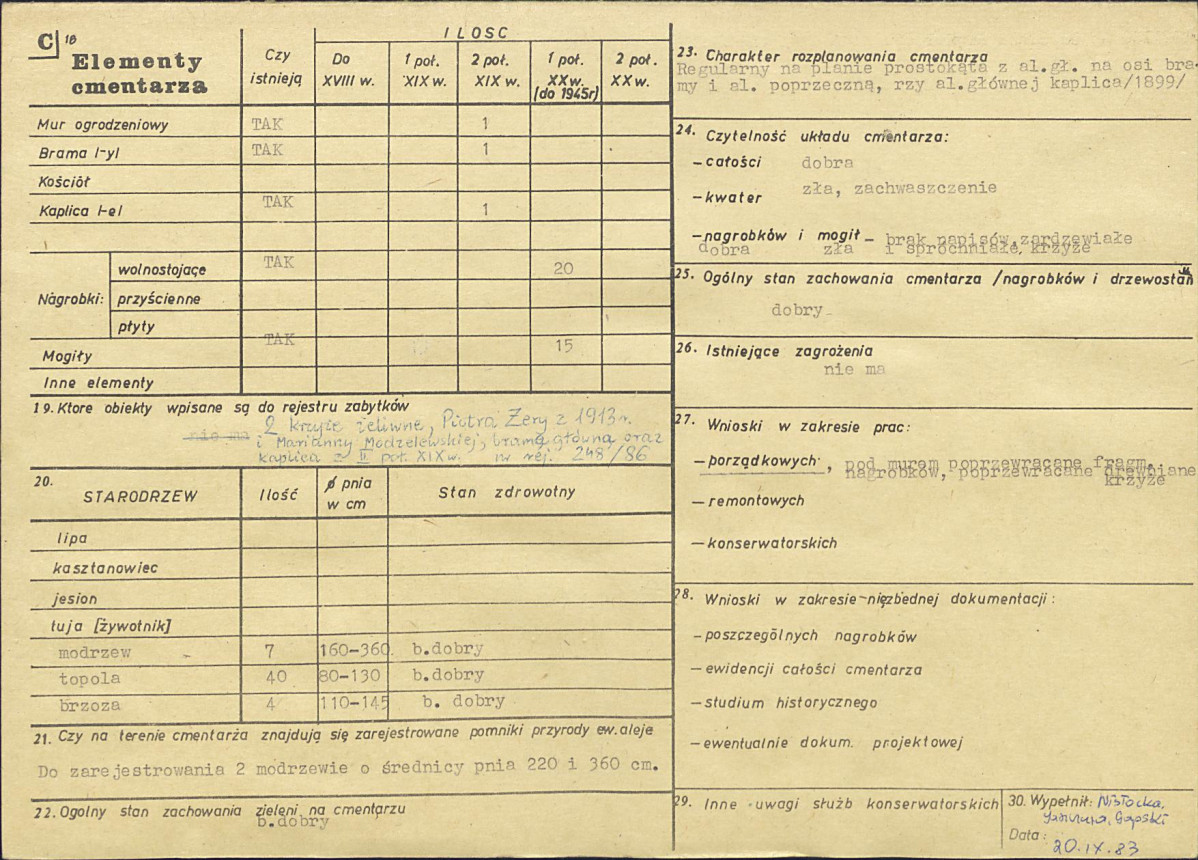 C 1B
Elementy
cmentarza
Czy
istnieją
ILOSC
Do
XVIII w.
1 poł.
XIX w.
2 poł.
XIX w.
1 poł.
XX w.
(do 1945r)
2 poł.
XX w.
Mur ogrodzeniowy TAK 1
Brama /-y/ TAK 1
Kościół
Kaplica /-e/ TAK 1
Nagrobki:
wolnostojące TAK 20
przyścienne
płyty
Mogiły TAK 15
Inne elementy
19. Ktore obiekty wpisane są do rejestru zabytków
nie ma
2 krzyże żeliwne, Piotra Żery z 1913 r.
i Marianny Modzelewskiej, bramę główną oraz
kaplica z II poł. XIX w. nr rej. 248/86
20. STARODRZEW Ilość ø pnia
w cm
Stan zdrowotny
lipa
kasztanowiec
jesion
tuja [żywotnik]
modrzew 7 160-360 b.dobry
topola 40 80-130 b.dobry
brzoza 4 110-145 b. dobry
21. Czy na terenie cmentarza znajdują się zarejestrowane pomniki przyrody ew. aleje
Do zarejestrowania 2 modrzewie o średnicy pnia 220 i 360 cm.
22. Ogolny stan zachowania zieleni na cmentarzu
b.dobry
23. Charakter rozplanowania cmentarza
Regularny na planie prostokąta z al.gł. na osi bra-
my i al. poprzeczną, rzy al.głównej kaplica/1899/
24. Czytelność układu cmentarza:
- całości dobra
- kwater zła, zachwaszczenie
- nagrobków i mogił - brak napisów, zardzewiałe
dobra zła i spróchniałe, krzyże
25. Ogólny stan zachowania cmentarza /nagrobków i drzewostan
dobry
26. Istniejące zagrożenia
nie ma
27. Wnioski w zakresie prac:
- porządkowych, pod murem poprzewracane fragm.
nagrobków, poprzewracane drewniane
krzyże
- remontowych
- konserwatorskich
28. Wnioski w zakresie niezbednej dokumentacji:
- poszczególnych nagrobków
- ewidencji całości cmentarza
- studium historycznego
- ewentualnie dokum. projektowej
29. Inne uwagi służb konserwatorskich
30. Wypełnił:
Data:
20.IX.83